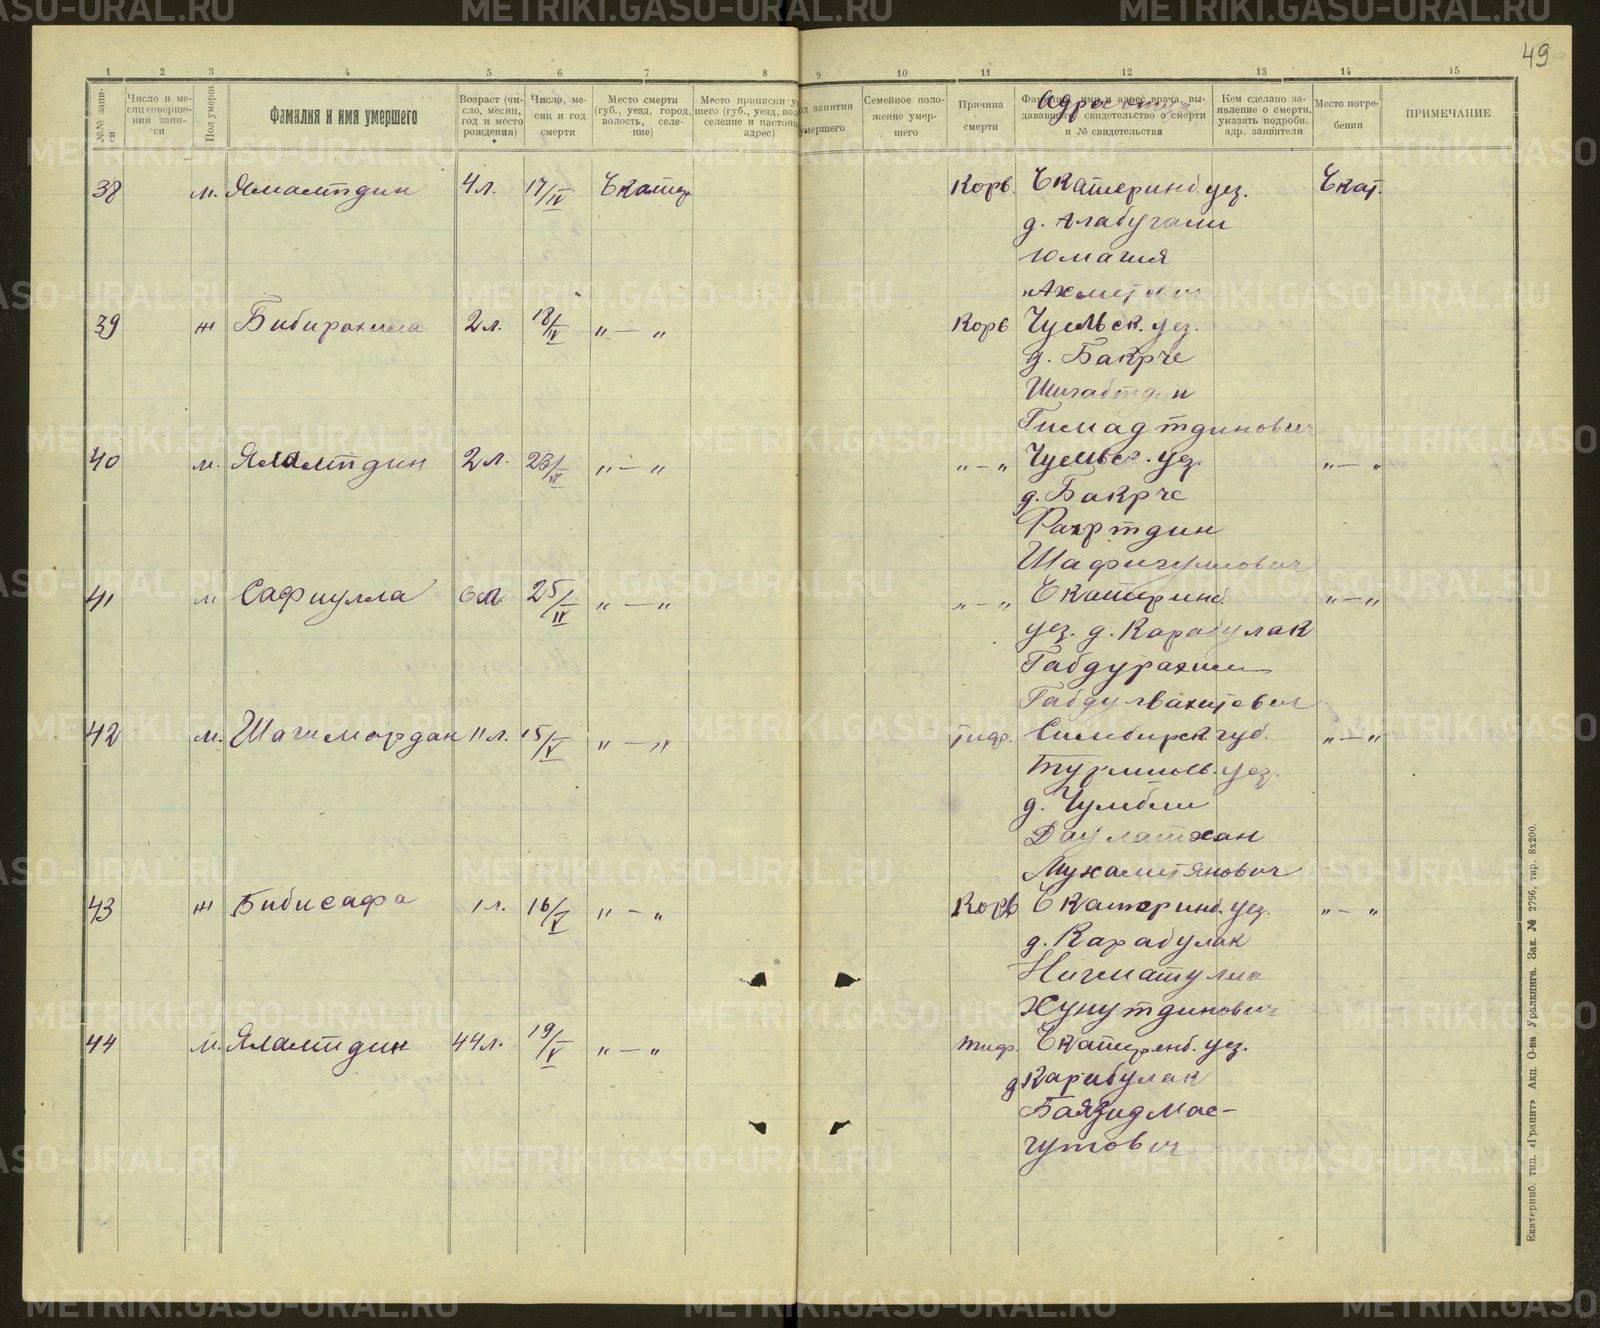 49
1 2 3 4 5 6 7 8 9 10 11 12 13 14 15
№№ запи-
си
Число и ме-
сяц соверше-
ния запи-
си
Пол умерш.
Фамилия и имя умершего
Возраст (чи-
сло, месяц,
год и место
рождения)
Число, ме-
сяц и год
смерти
Место смерти
(губ., уезд, город,
волость, селе-
ние)
Место приписки у-
шего (губ., уезд, вол.
селение и настоящ
адрес)
од занятия
умершего
Семейное поло-
жение умер-
шего
Причина
смерти
Фамилия, имя и адрес врача, вы-
дававшего свидетельство о смерти
и № свидетельства
Адрес отца
Кем сделано за-
явление о смерти,
указать подробн.
адр. заявителя
Место погре-
бения
ПРИМЕЧАНИЕ
38 м. Ямалтдин 4 л. 17/IV Екатер. Корв. Екатеринб. уез. Екат.
д. Алабугали
Юмагия
Ахметович
39 ж Бибирахима 2 л. 18/IV „ — „ Корв
уез.
д. Бакрче
Шигабтдин
Гимадтдинович
40 м. Ялалтдин 2 л. 23/IV „ — „ „ — „ уез. „ — „
д. Бакрче
Фахртдин
Шафигуллович
41 м Сафиулла 6 л. 25/IV „ — „ „ — „ Екатеринб. „ — „
уез. д. Карабулак
Габдурахим
Габдулвахитович
42 м. Шагимордан 11 л. 15/V „ — „ Тиф. Симбирск губ. „ — „
уез.
д. Чумбли
Даулатхан
Мухаметянович
43 ж Бибисафа 1 л. 16/V „ — „ Корв Екатеринб. уез. „ — „
д. Карабулак
Нигматулла
44 м. Ялалтдин 44 л. 19/V „ — „ тиф. Екатеренб. уез.
д Карабулак
Баязид Мас-
гутович
Екатеринб. тип. «Гранит» Акц. О-ва Уралкнига. Зак. № 2796, тир. 8х200.
METRIKI.GASO-URAL.RU